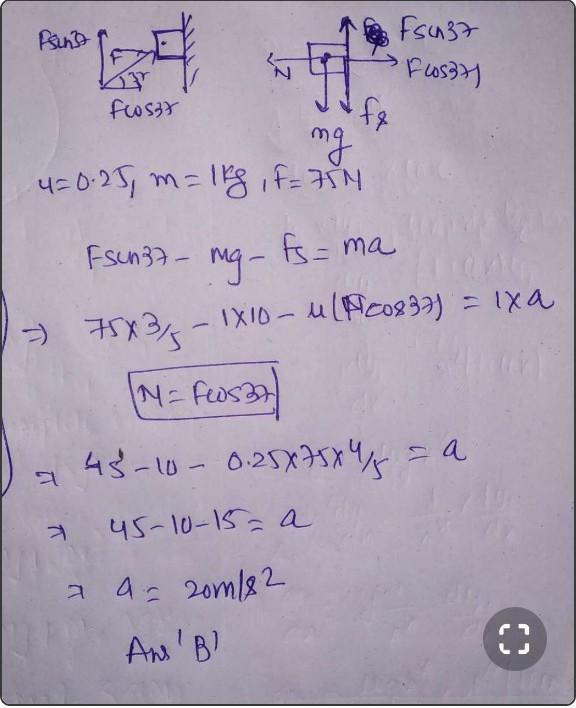 Fsin37 F 37 Fcos37
Fsin37
N Fcos37
mg fs
u=0.25, m=1kg, f=75N
Fsin37 - mg - fs = ma
⇒ 75×3/5 - 1×10 - u(Fcos37) = 1×a
N = Fcos37
⇒ 45-10 - 0.25×75×4/5 = a
⇒ 45-10-15 = a
⇒ a = 20m/s2
Ans 'B'